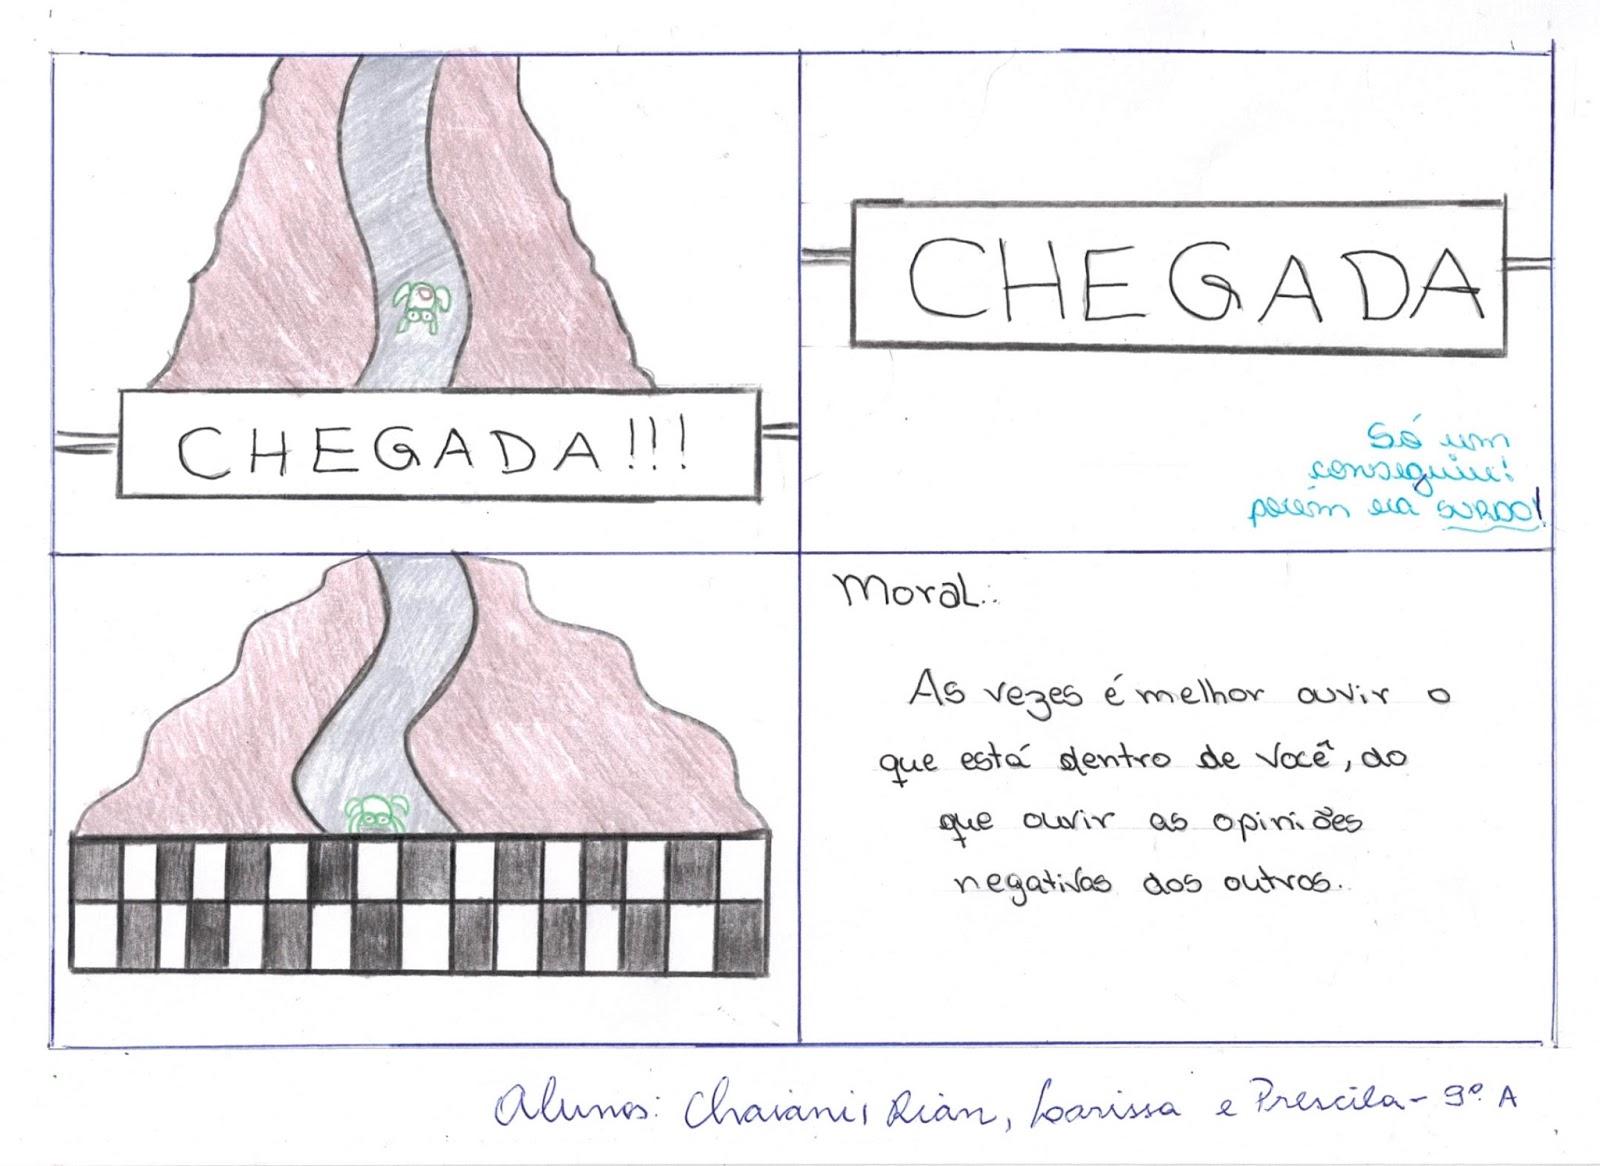 CHEGADA!!!
CHEGADA
Só um
conseguiu!
porém era SURDO!
Moral:.
As vezes é melhor ouvir o
que está dentro de você, do
que ouvir as opiniões
negativas dos outros.
Alunos: Chaiani, Rian, Larissa e Prescila - 9º A